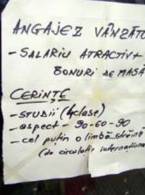 ANGAJEZ VÂNZĂTO
- SALARIU ATRACTIV +
BONURI DE MASĂ
CERINŢE
- studii (4 clase)
- aspect - 90-60-90
- cel puţin o limbă străină
(de circulaţie internaţional